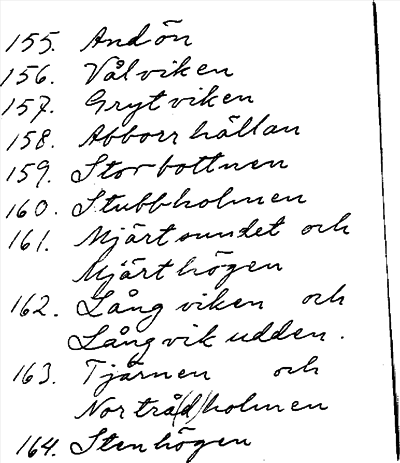 155. Andön
156. Vålviken
157. Grytviken
158. Abborrhällan
159. Storbottnen
160. Stubbholmen
161. Mjärtsundet och
Mjärthögen
162. Långviken och
Långvikudden.
163. Tjärnen och
Norträ(d)holmen
164. Stenhögen